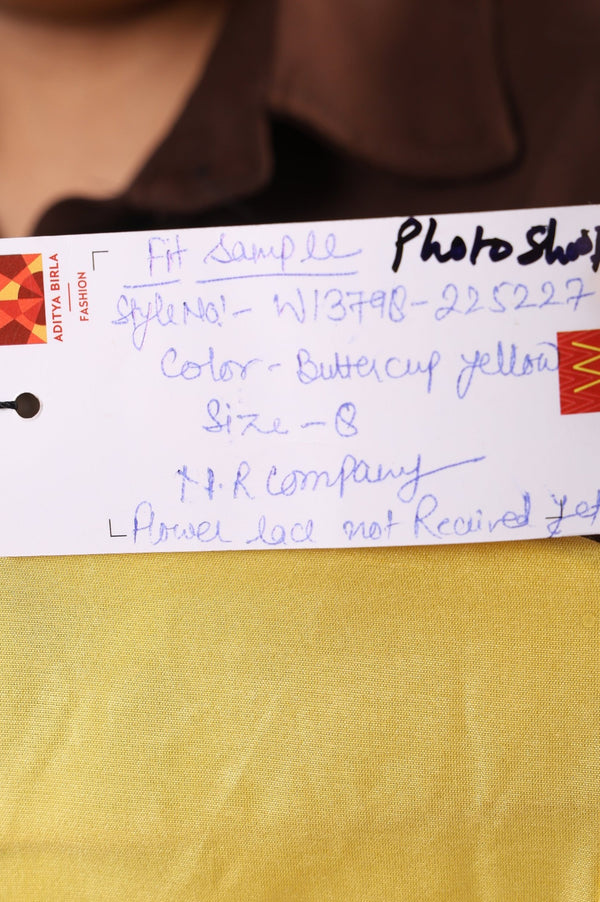 ADITYA BIRLA
FASHION
Fit Sample
Photo Shoot
Style No:- W13798-225227
Color - Buttercup yellow
Size - 8
M.R Company
Flower lace not Received yet